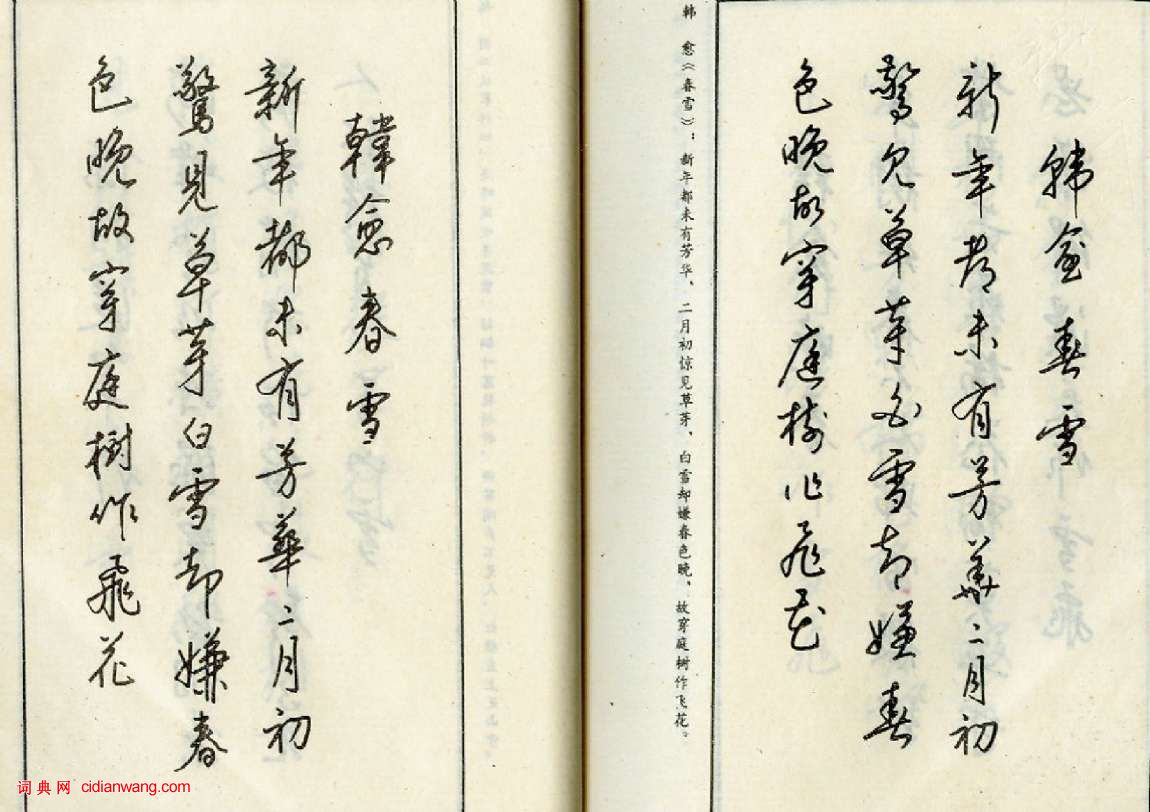 韩愈春雪
新年都未有芳華二月初
驚见草芽白雪却嫌春
色晚故穿庭树作飛花
韩　愈《春雪》：新年都未有芳华，二月初惊见草芽，白雪却嫌春色晚，故穿庭树作飞花。
韓愈春雪
新年都未有芳華二月初
驚見草芽白雪却嫌春
色晚故穿庭樹作飛花
词典网 cidianwang.com